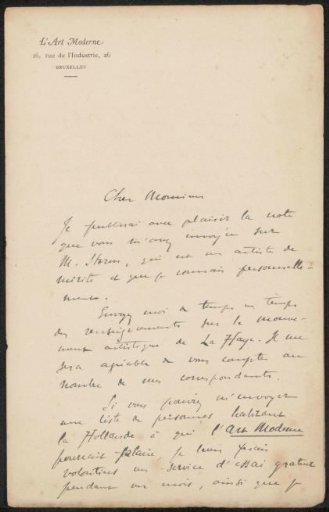 L'Art Moderne
26, rue de l'Industrie, 26
BRUXELLES
Cher Monsieur
Je publierai avec plaisir la note
que vous m'avez envoyée sur
M. Storm, qui est un artiste de
mérite et que je connais personnelle-
ment.
Envoyez moi de temps en temps
des renseignements sur le mouve-
ment artistique de La Haye. Il me
sera agréable de vous compter au
nombre de mes correspondants.
Si vous pouvez m'envoyer
une liste de personnes habitant
la Hollande à qui l'Art Moderne
pourrait plaire je leur ferais
volontiers un service d'essai gratuit
pendant un mois, ainsi que je